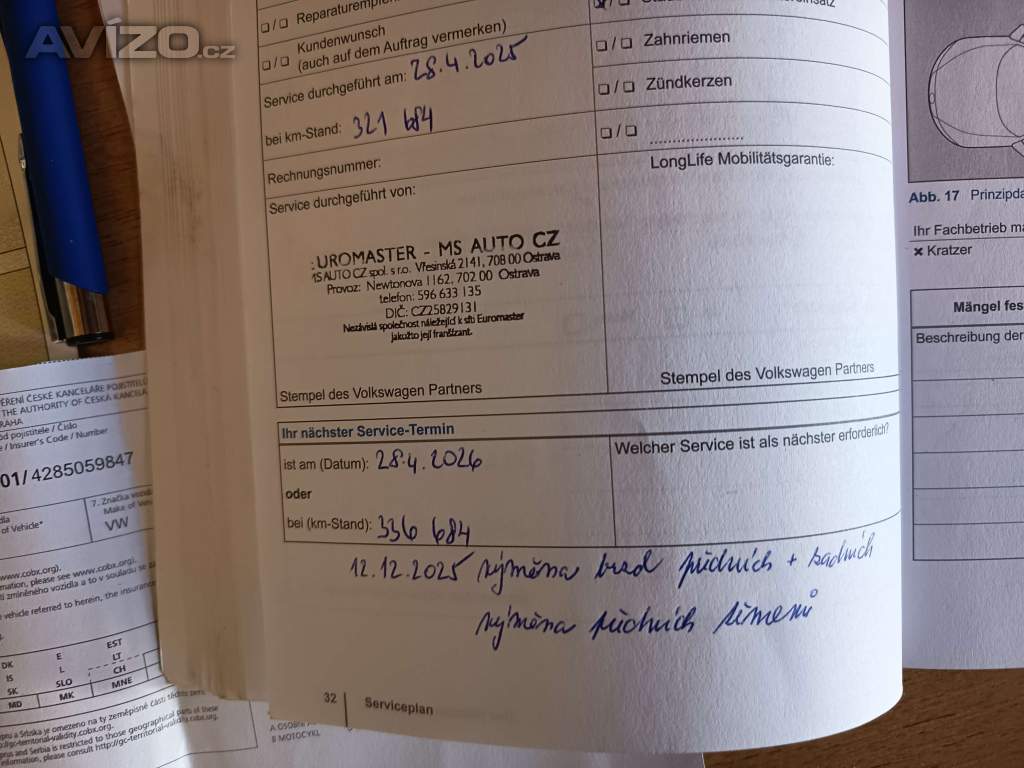 AVÍZO.cz
Reparaturempf
Kundenwunsch
(auch auf dem Auftrag vermerken)
Service durchgeführt am: 28.4.2025
bei km-Stand: 321 684
Rechnungsnummer:
Service durchgeführt von:
UROMASTER - MS AUTO CZ
MS AUTO CZ spol. s r.o. Vřesinská 2141, 708 00 Ostrava
Provoz: Newtonova 1162, 702 00 Ostrava
telefon: 596 633 135
DIČ: CZ25829131
Nezávislá společnost náležející k síti Euromaster
jakožto její franšízant.
Stempel des Volkswagen Partners
Zahnriemen
Zündkerzen
....................
LongLife Mobilitätsgarantie:
Stempel des Volkswagen Partners
Ihr nächster Service-Termin
ist am (Datum): 28.4.2026
oder
bei (km-Stand): 336 684
Welcher Service ist als nächster erforderlich?
12.12.2025 výměna brzd předních + zadních
výměna předních
32 Serviceplan
Abb. 17 Prinzipda
Ihr Fachbetrieb ma
× Kratzer
Mängel fes
Beschreibung der
ĚŘENÍ ČESKÉ KANCELÁŘE POJISTITEL
THE AUTHORITY OF ČESKÁ KANCELÁ
RAHA
ód pojistitele / Číslo
/ Insurer's Code / Number
01/ 4285059847
7. Značka vozidl
Make of Veh
of Vehicle*
VW
www.cobx.org).
mation, please see www.cobx.org).
vehicle referred to herein, the insurance
DK E EST
IS L LT
SK SLO CH
MD MK MNE
prus and Serbia is restricted to those geographical parts of these
information, please consult http://gc-territorial-validity.cobx.org.
A OSOBNÍ
B MOTOCYKL